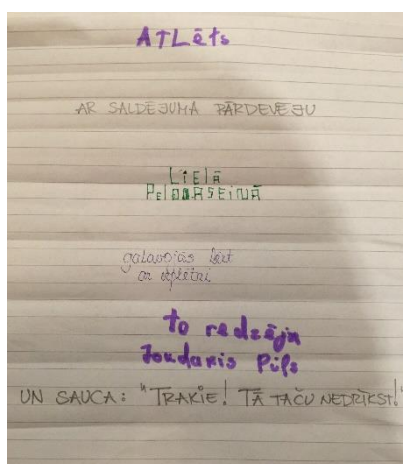 ATLĒts
AR SALDĒJUMA PĀRDEVĒJU
LIELĀ
PELDBASEINĀ
gatavojās iet
ar
to redzēja
Joudaris Pūļs
UN SAUCA: "TRAKIE! TĀ TAČU NEDRĪKST!"